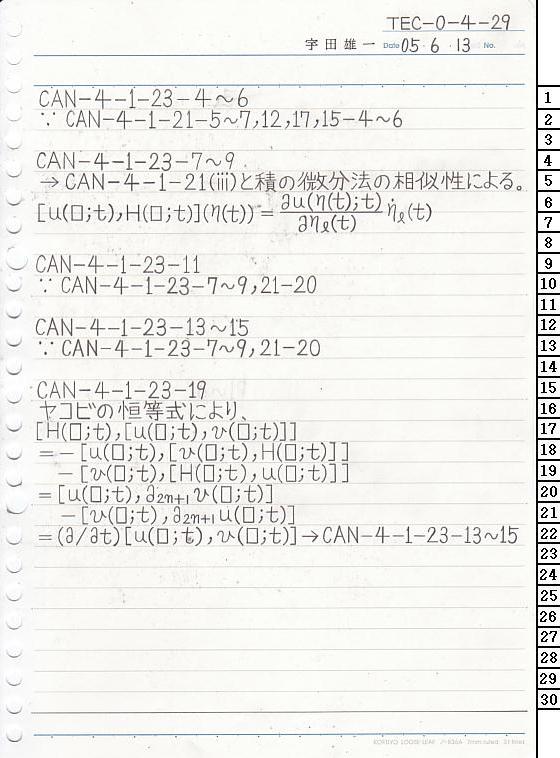 TEC-0-4-29
宇田雄一 Date 05・6・13 No.
CAN-4-1-23-4~6
∵ CAN-4-1-21-5~7,12,17,15-4~6
CAN-4-1-23-7~9
→CAN-4-1-21(iii)と積の微分法の相似性による。
[u(□;t),H(□;t)](η(t))=∂u(η(t);t)/∂ηℓ(t) η̇ℓ(t)
CAN-4-1-23-11
∵ CAN-4-1-23-7~9,21-20
CAN-4-1-23-13~15
∵ CAN-4-1-23-7~9,21-20
CAN-4-1-23-19
ヤコビの恒等式により、
[H(□;t),[u(□;t),v(□;t)]]
=-[u(□;t),[v(□;t),H(□;t)]]
-[v(□;t),[H(□;t),u(□;t)]]
=[u(□;t),∂2n+1v(□;t)]
-[v(□;t),∂2n+1u(□;t)]
=(∂/∂t)[u(□;t),v(□;t)]→CAN-4-1-23-13~15
1
2
3
4
5
6
7
8
9
10
11
12
13
14
15
16
17
18
19
20
21
22
23
24
25
26
27
28
29
30
KOKUYO LOOSE-LEAF ノ-836A 7mm ruled 31 lines